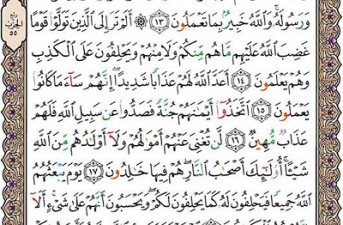 وَرَسُولَهُۥ ۚ وَٱللَّهُ خَبِيرٌۢ بِمَا تَعْمَلُونَ ١٣ أَلَمْ تَرَ إِلَى ٱلَّذِينَ تَوَلَّوْا۟ قَوْمًا
غَضِبَ ٱللَّهُ عَلَيْهِم مَّا هُم مِّنكُمْ وَلَا مِنْهُمْ وَيَحْلِفُونَ عَلَى ٱلْكَذِبِ
وَهُمْ يَعْلَمُونَ ١٤ أَعَدَّ ٱللَّهُ لَهُمْ عَذَابًا شَدِيدًا ۖ إِنَّهُمْ سَآءَ مَا كَانُوا۟
يَعْمَلُونَ ١٥ ٱتَّخَذُوٓا۟ أَيْمَٰنَهُمْ جُنَّةً فَصَدُّوا۟ عَن سَبِيلِ ٱللَّهِ فَلَهُمْ
عَذَابٌ مُّهِينٌ ١٦ لَّن تُغْنِىَ عَنْهُمْ أَمْوَٰلُهُمْ وَلَآ أَوْلَٰدُهُم مِّنَ ٱللَّهِ
شَيْـًٔا ۚ أُو۟لَٰٓئِكَ أَصْحَٰبُ ٱلنَّارِ ۖ هُمْ فِيهَا خَٰلِدُونَ ١٧ يَوْمَ يَبْعَثُهُمُ
ٱللَّهُ جَمِيعًا فَيَحْلِفُونَ لَهُۥ كَمَا يَحْلِفُونَ لَكُمْ ۖ وَيَحْسَبُونَ أَنَّهُمْ عَلَىٰ شَىْءٍ ۚ أَلَآ